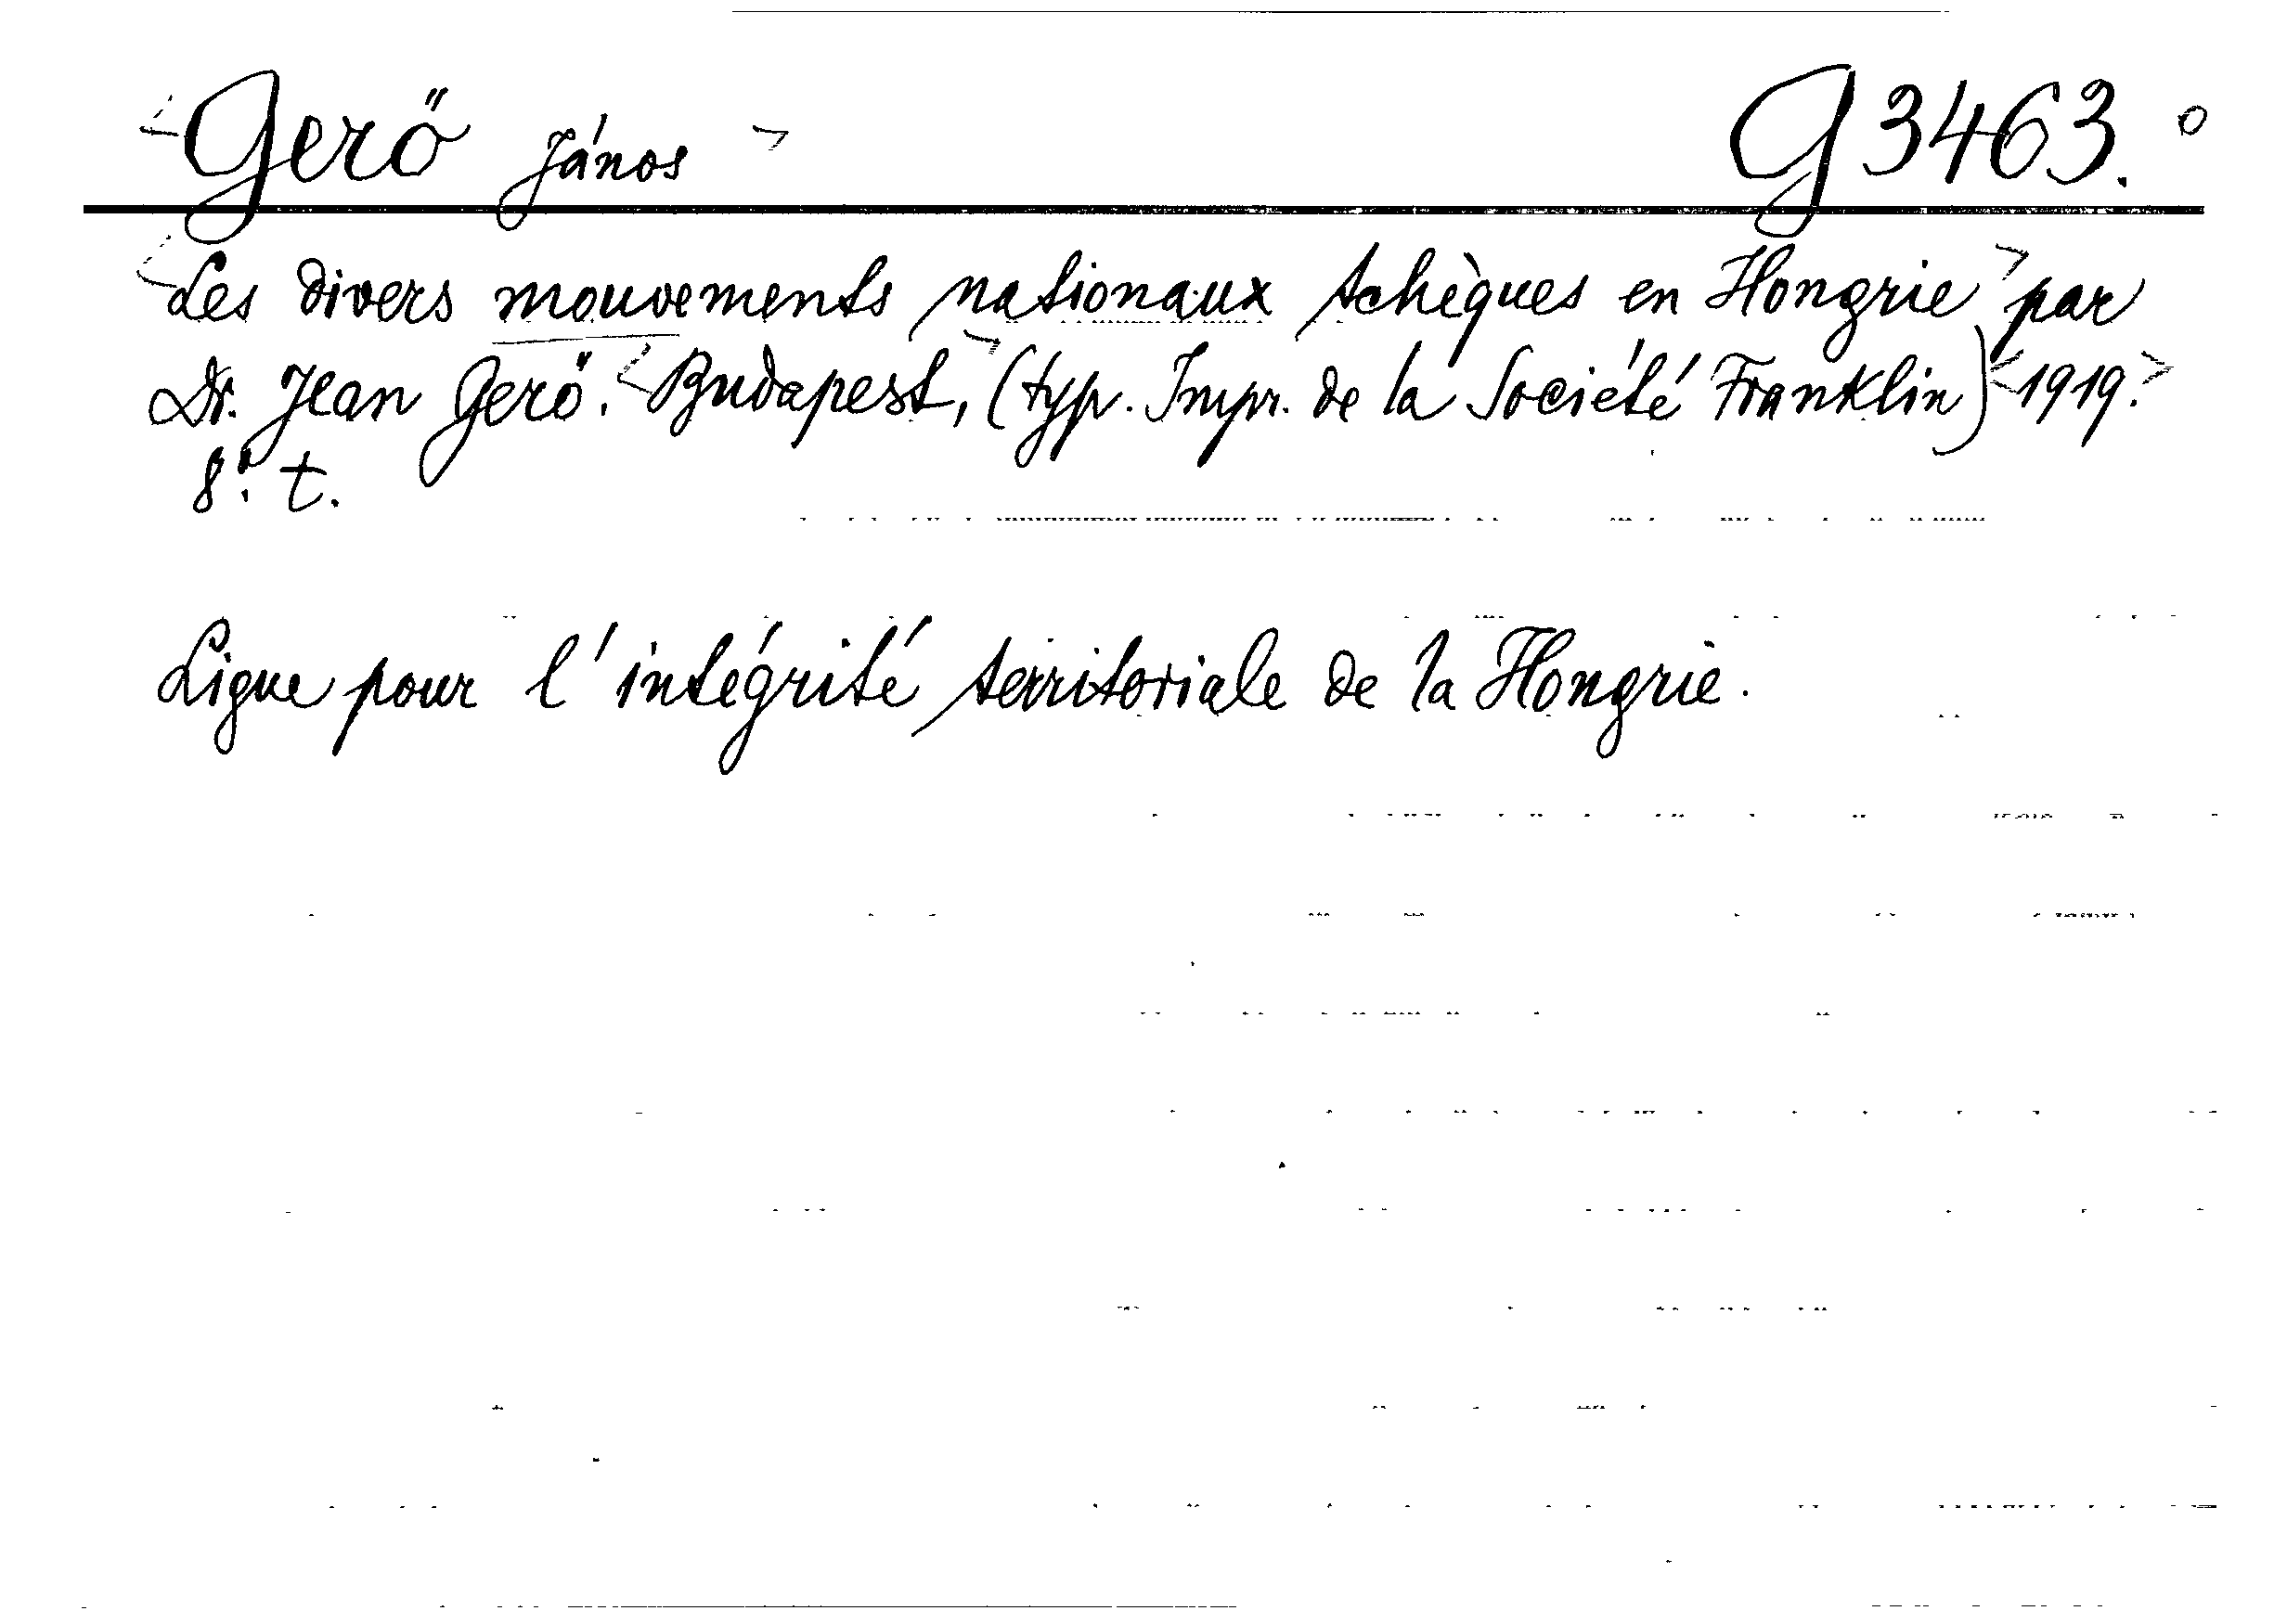 Gerő János G 3463.
Les divers mouvements nationaux tchèques en Hongrie par
Dr. Jean Gerő. Budapest, (typ. Impr. de la Société Franklin) 1919.
8°. t.
Ligue pour l'intégrité territoriale de la Hongrie.